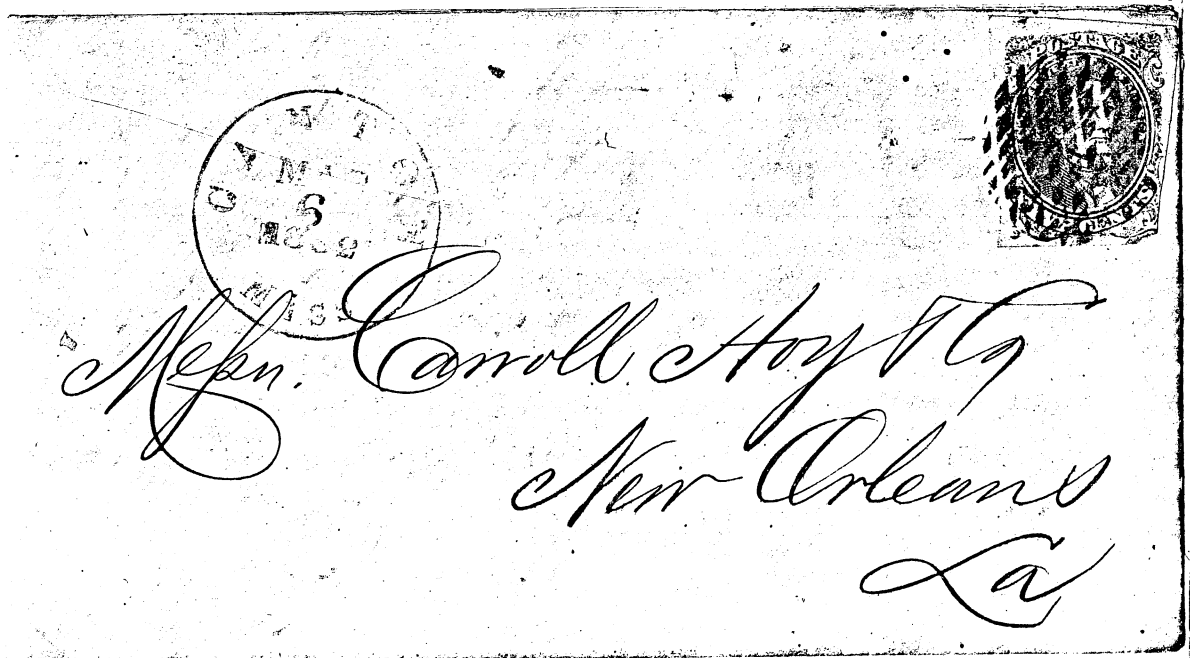 POSTAGE
CANTON
MAR
6
1862
MISS
Messrs. Carroll Hoy & Co
New Orleans
La